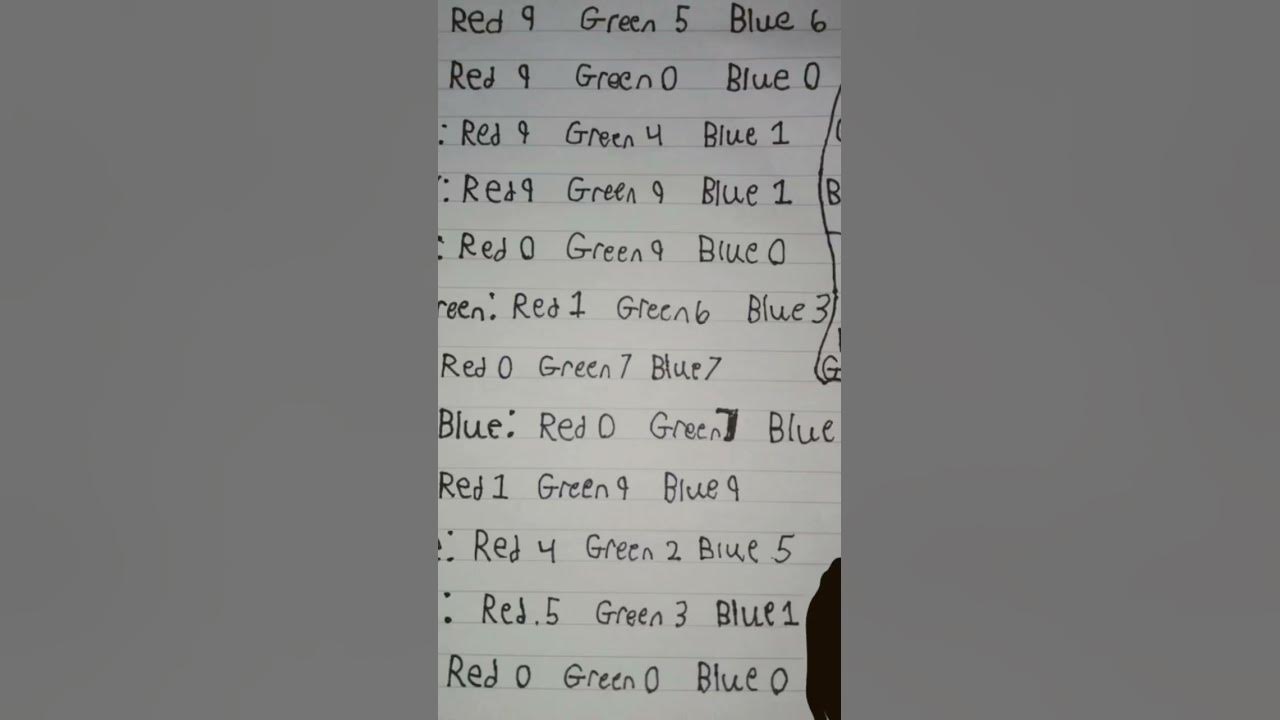 Red 9 Green 5 Blue 6
Red 9 Green 0 Blue 0
: Red 9 Green 4 Blue 1
: Red 9 Green 9 Blue 1
B
: Red 0 Green 9 Blue 0
reen: Red 1 Green 6 Blue 3
Red 0 Green 7 Blue 7
G
Blue: Red 0 Green 7 Blue
Red 1 Green 9 Blue 9
: Red 4 Green 2 Blue 5
: Red.5 Green 3 Blue 1
Red 0 Green 0 Blue 0